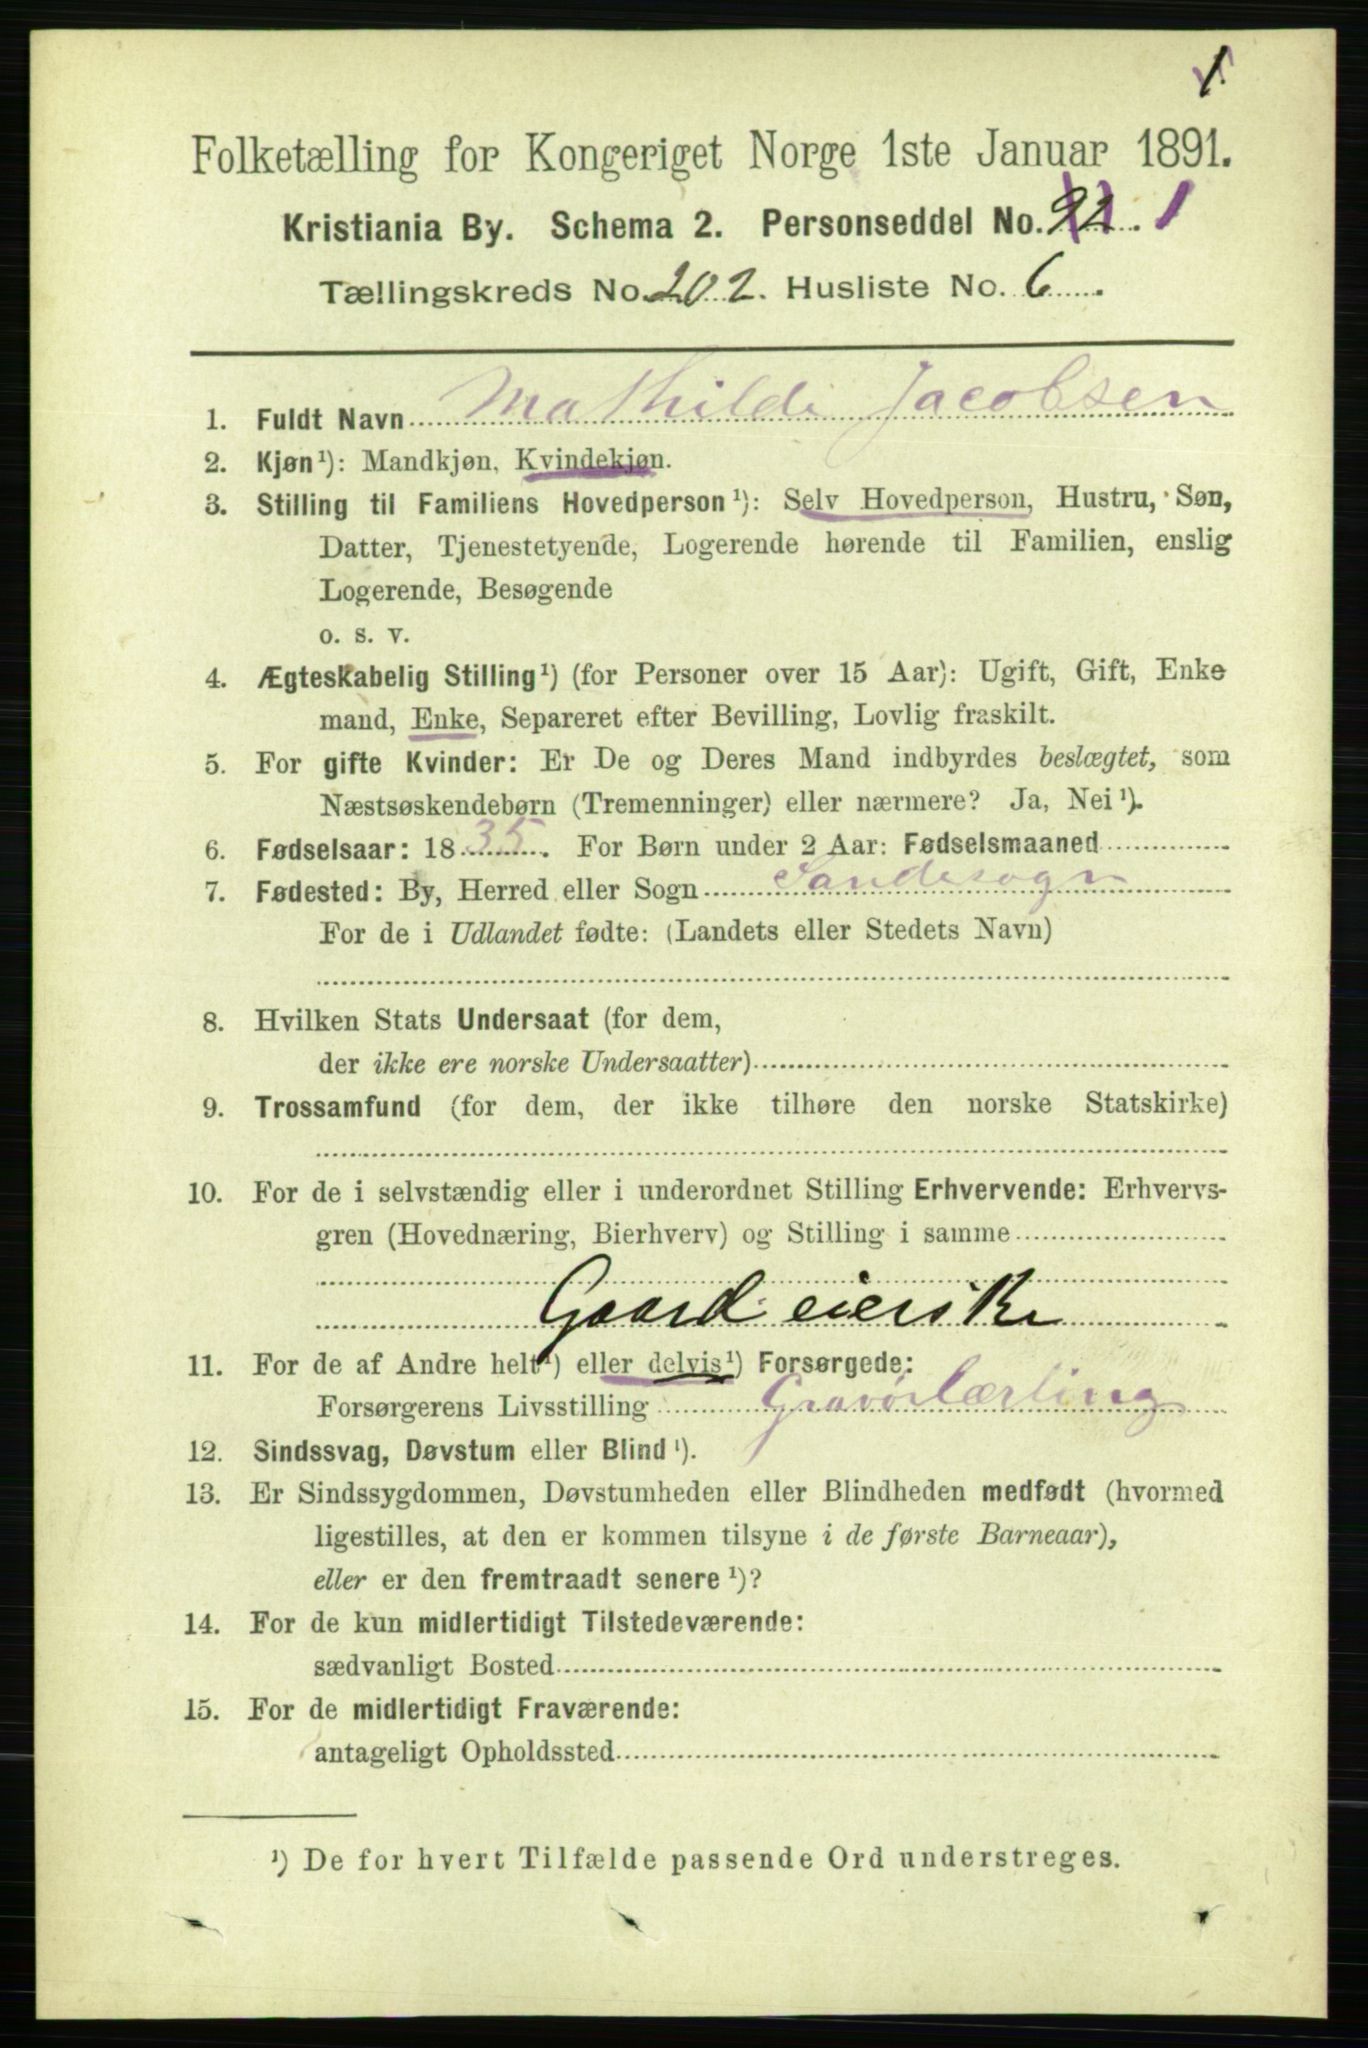 1
Folketælling for Kongeriget Norge 1ste Januar 1891.
Kristiania By. Schema 2. Personseddel No. 92. 1
Tællingskreds No. 202. Husliste No. 6
1. Fuldt Navn Mathilde Jacobsen
2. Kjøn¹): Mandkjøn, Kvindekjøn.
3. Stilling til Familiens Hovedperson¹): Selv Hovedperson, Hustru, Søn,
Datter, Tjenestetyende, Logerende hørende til Familien, enslig
Logerende, Besøgende
o. s. v.
4. Ægteskabelig Stilling¹) (for Personer over 15 Aar): Ugift, Gift, Enke
mand, Enke, Separeret efter Bevilling, Lovlig fraskilt.
5. For gifte Kvinder: Er De og Deres Mand indbyrdes beslægtet, som
Næstsøskendebørn (Tremenninger) eller nærmere? Ja, Nei¹).
6. Fødselsaar: 1835. For Børn under 2 Aar: Fødselsmaaned
7. Fødested: By, Herred eller Sogn Sandesogn
For de i Udlandet fødte: (Landets eller Stedets Navn)
8. Hvilken Stats Undersaat (for dem,
der ikke ere norske Undersaatter)
9. Trossamfund (for dem, der ikke tilhøre den norske Statskirke)
10. For de i selvstændig eller i underordnet Stilling Erhvervende: Erhvervs-
gren (Hovednæring, Bierhverv) og Stilling i samme
Gaardeierske
11. For de af Andre helt¹) eller delvis¹) Forsørgede:
Forsørgerens Livsstilling Gravørlærling
12. Sindssvag, Døvstum eller Blind¹).
13. Er Sindssygdommen, Døvstumheden eller Blindheden medfødt (hvormed
ligestilles, at den er kommen tilsyne i de første Barneaar),
eller er den fremtraadt senere¹)?
14. For de kun midlertidigt Tilstedeværende:
sædvanligt Bosted
15. For de midlertidigt Fraværende:
antageligt Opholdssted
¹) De for hvert Tilfælde passende Ord understreges.